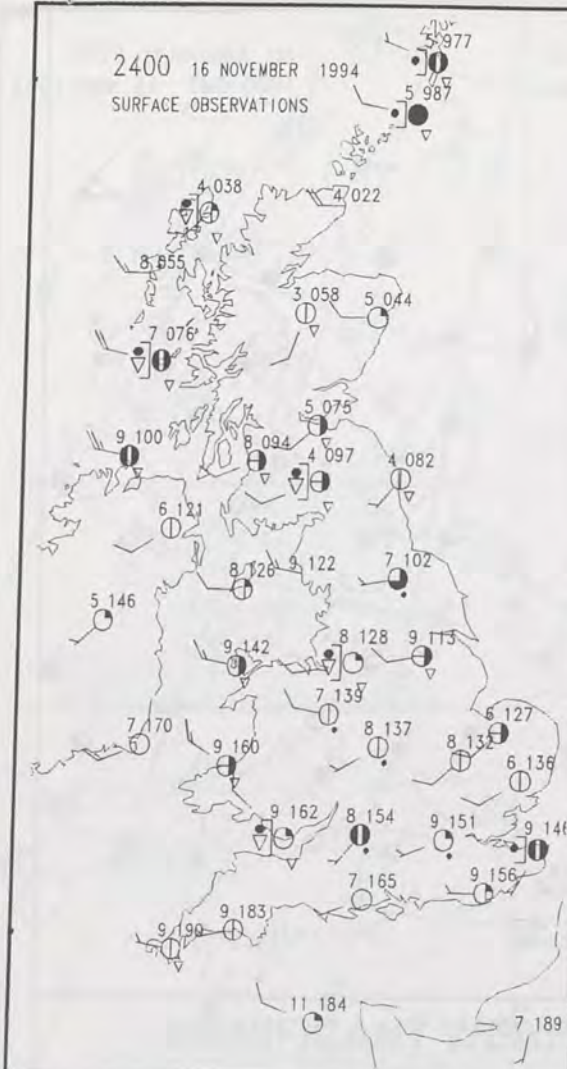 5 977
2400 16 NOVEMBER 1994
5 987
SURFACE OBSERVATIONS
4 038
4 022
8 055
3 058
5 044
7 076
5 075
9 100
8 094
4 097
4 082
6 121
9 122
7 102
8 126
5 146
9 142
8 128
9 113
7 139
6 127
7 170
8 137
8 132
9 160
6 136
9 162
8 154
9 151
9 146
7 165
9 156
9 183
9 190
11 184
7 189